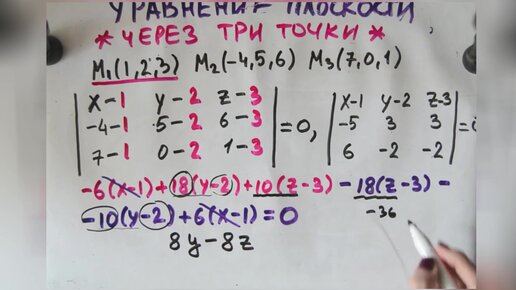 УРАВНЕНИЕ ПЛОСКОСТИ
* ЧЕРЕЗ ТРИ ТОЧКИ *
M₁(1,2,3) M₂(-4,5,6) M₃(7,0,1)
| x-1 y-2 z-3 | | x-1 y-2 z-3 |
| -4-1 5-2 6-3 | =0, | -5 3 3 | =
| 7-1 0-2 1-3 | | 6 -2 -2 |
-6(x-1)+18(y-2)+10(z-3)-18(z-3)-
-10(y-2)+6(x-1)=0
-36
8y-8z